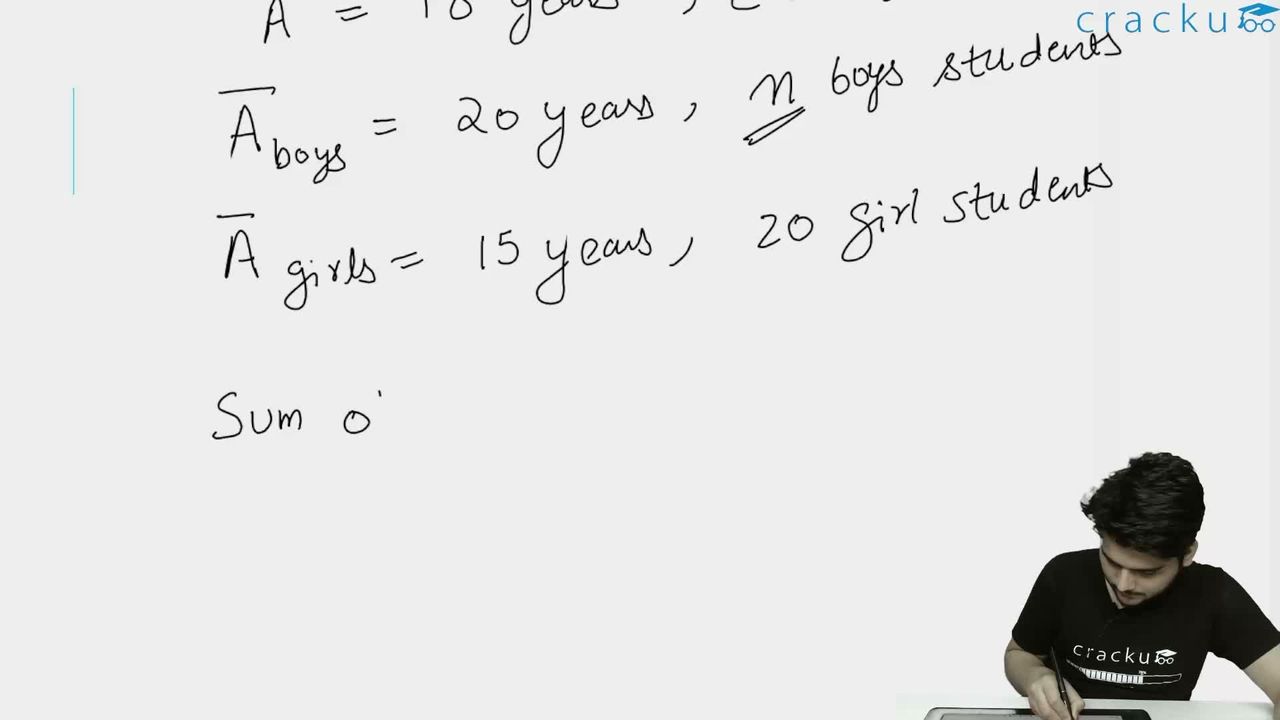 cracku
A = 18 years ,
A boys = 20 years , n boys students
A girls = 15 years , 20 girl students
Sum o
cracku